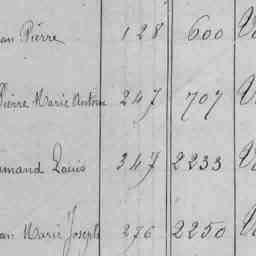 an Pierre 128 600
Pierre Marie Antoine 247 707
mand Louis 347 2233
an Marie Joseph 276 2250